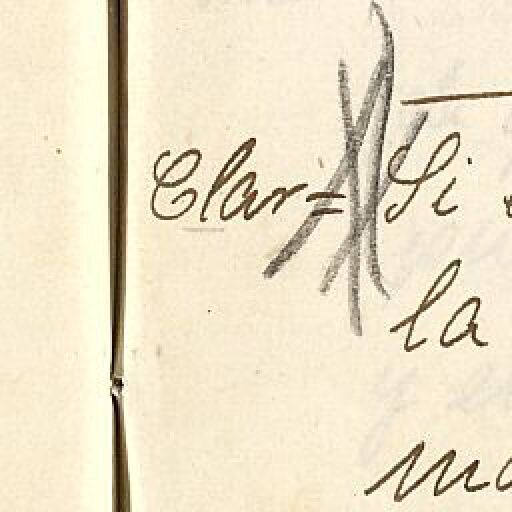 Clar= Si
la